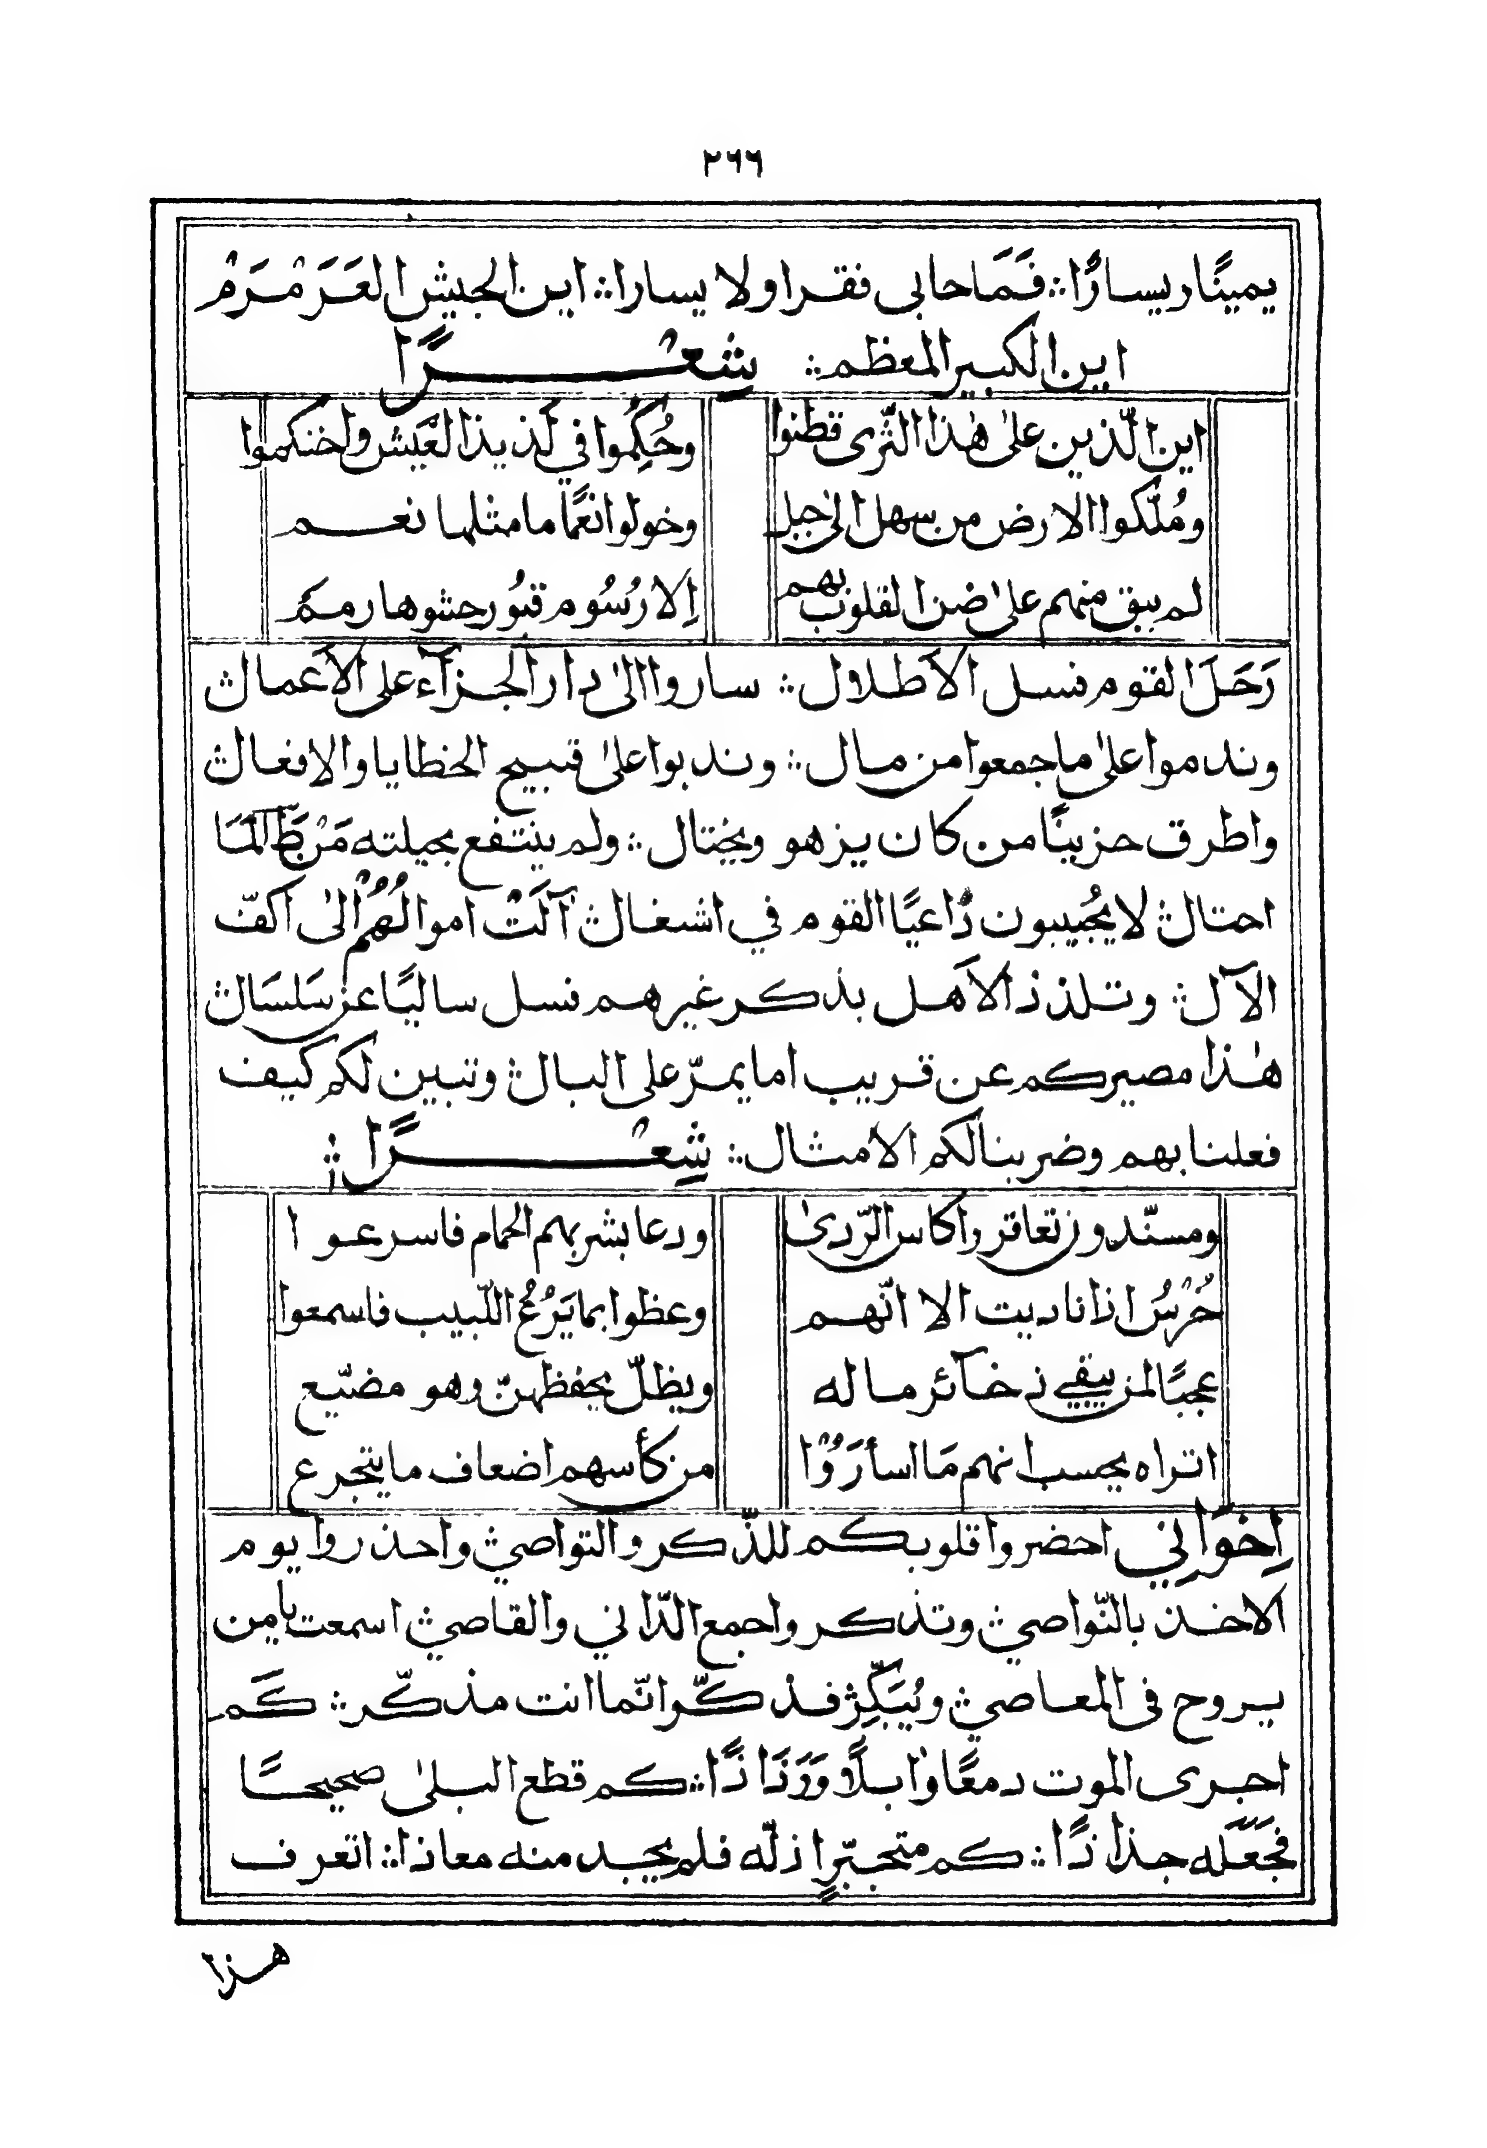 ٢٦٦
يمينًا ويسارًا ؞ فَمَا حابى فقرا ولا يسارا ؞ اين الجيش العَرَمْرَمُ
اين الكبير المعظم ؞ شِعْرًا
اين الّذين علىٰ هٰذا الثّرى قطنوا وحُكِّموا في لَذيذ العَيش واحتكموا
ومُلّكوا الارض من سهل الىٰ جبل وخولوا نعَمًا ما مثلها نعم
لم يبق منهم علىٰ ضن القلوب بهم اِلا رُسُوم قبُور حشوها رمم
رَحَلَ القوم فسل الاَطلال ؞ ساروا الىٰ دار الجزآء على الاَعمال ؞
وندموا علىٰ ما جمعوا من مال ؞ وندبوا علىٰ قبيح الخطايا والافعال ؞
واطرق حزينًا من كان يزهو ويختال ؞ ولم ينتفع بحيلته مَنْ طَالَمَا
احتال ؞ لا يُجيبون دَاعيًا القوم في اشغال ؞ آلَتْ اموالُهُمْ الىٰ اَكفّ
الآل ؞ وتلذذ الاَهل بذكر غيرهم فسل سالبًا عن سَلسَال ؞
هٰذا مصيركم عن قريب اما يمرّ على البال ؞ وتبين لكم كيف
فعلنا بهم وضربنا لكم الامثال ؞ شِعْرًا ؞
ومسنّدون تعاقروا كاس الرّدىٰ ودعا بشربهم الحمام فاسرعوا
خُرْسُ اذا ناديت الا انّهم وعظوا بما يَرُعُ اللّبيب فاسمعوا
عجبًا لمن يبقي ذخآئر ماله ويظلّ يحفظهنّ وهو مضيّع
اتراه يحسب انهم مَا اسأرَوُا من كأسهم اضعاف ما يتجرع
اِخوَاني احضروا قلوبكم للذّكر والتواصي ؞ واحذروا يوم
الاخذ بالنّواصي ؞ وتذكر واجمع الدّاني والقاصي ؞ اسمعت يامن
يروح فى المعاصي ؞ ويُبَكِّرُ فذكّر انّما انت مذكّر ؞ كَم
اجرى الموت دمعًا وَابلًا وَرَذَاذًا ؞ كم قطع البلىٰ صحيحًا
فجَعَلَه جذاذًا ؞ كم متجبّرٍ اذلّه فلم يجد منه معاذا ؞ اتعرف
هذا